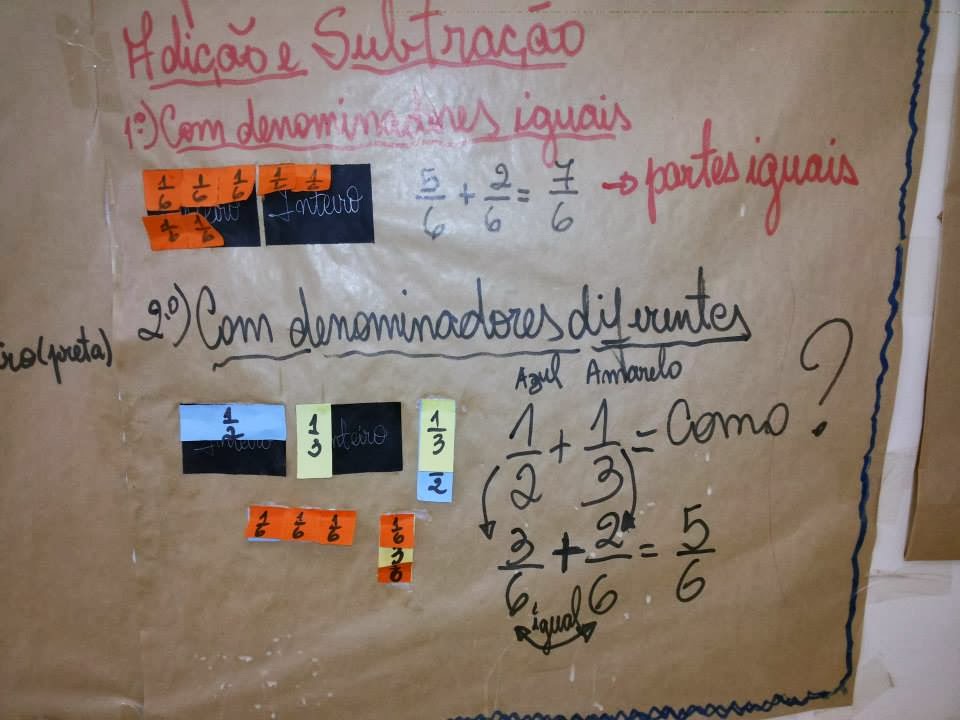 Adição e Subtração
1º) Com denominadores iguais
1/6 1/6 1/6 1/6 1/6
Inteiro
1/6 1/6
5/6 + 2/6 = 7/6 → partes iguais
2º) Com denominadores diferentes
(preta)
Azul Amarelo
1/2
Inteiro
1/3
nteiro
1/3
2
1/2 + 1/3 = Como ?
1/6 1/6 1/6
1/6
3/6 + 2/6 = 5/6
igual